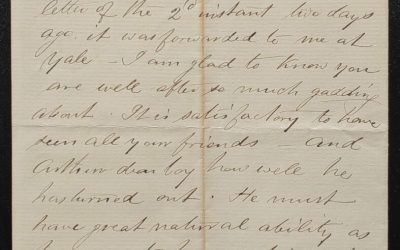 letter of the 2d instant two days
ago. it was forwarded to me at
Yale - I am glad to know you
are well after so much gadding
about. It is satisfactory to have
seen all your friends - and
Arthur dear boy how well he
has turned out. He must
have great natural ability as